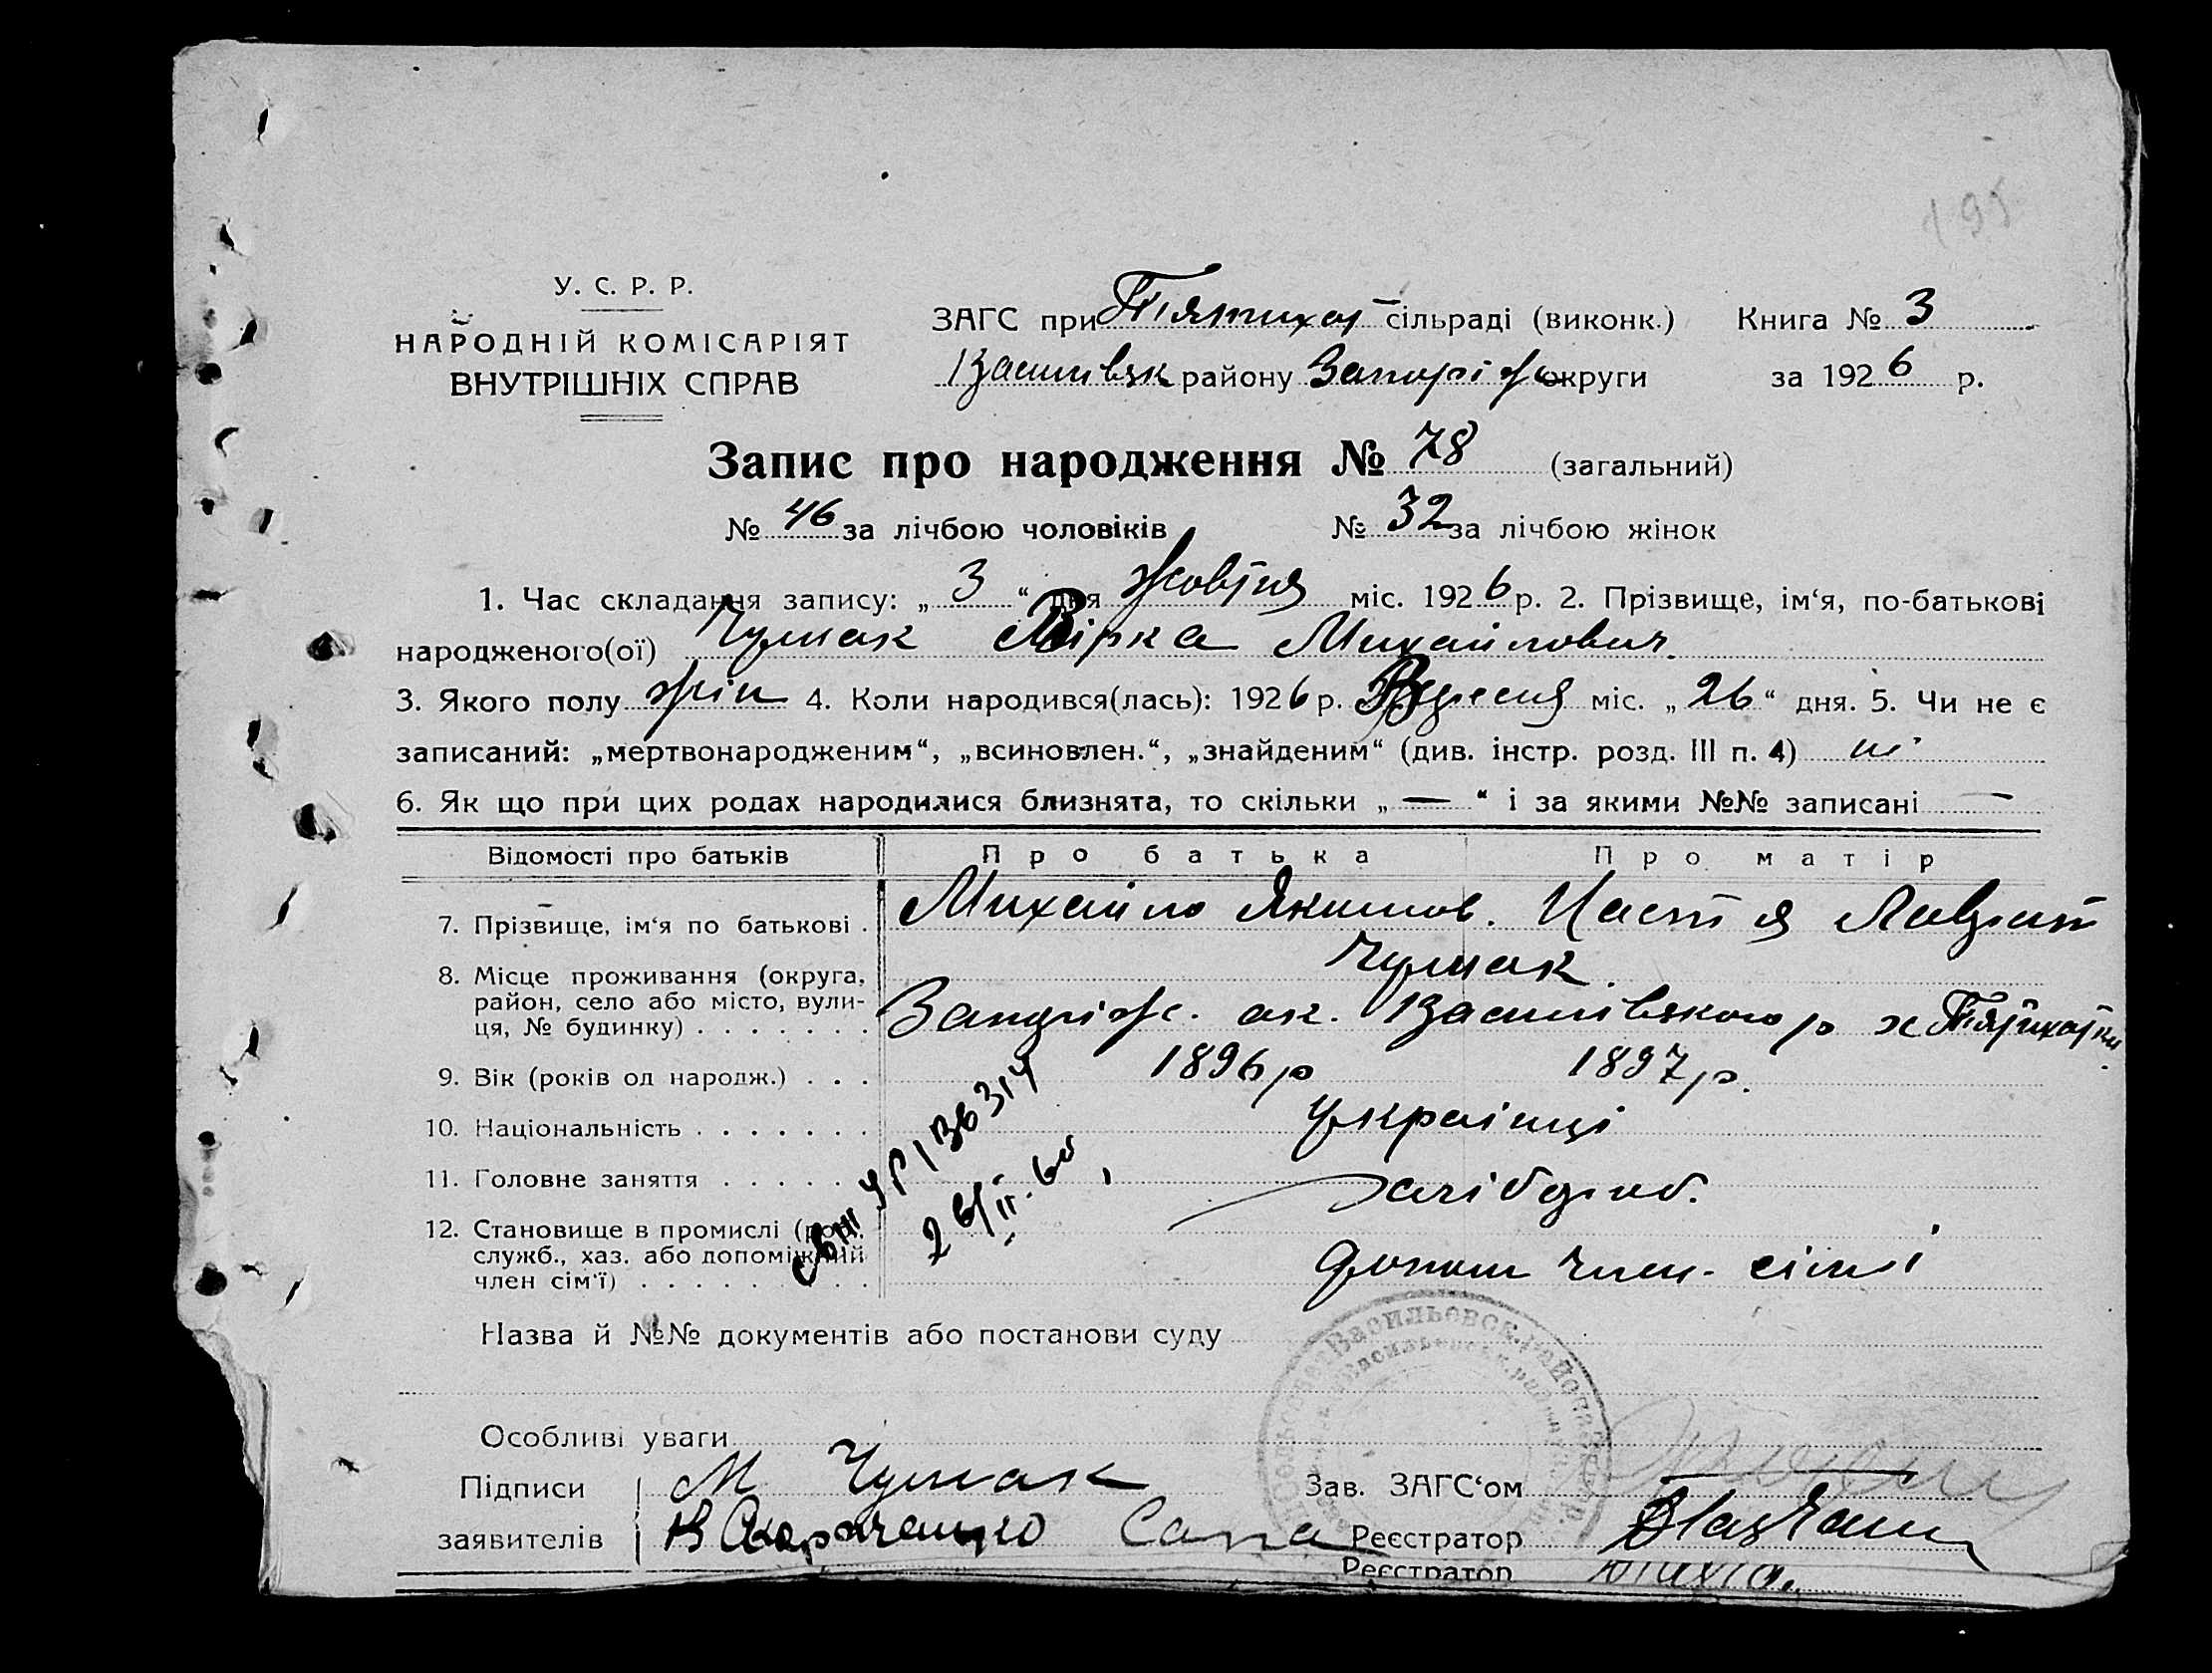 195
У. С. Р. Р.
НАРОДНІЙ КОМІСАРІЯТ
ВНУТРІШНІХ СПРАВ
ЗАГС при Пятихат сільраді (виконк.) Книга № 3
Василівськ району Запоріж округи за 1926 р.
Запис про народження № 78 (загальний)
№ 46 за лічбою чоловіків № 32 за лічбою жінок
1. Час складання запису: „3“ дня жовтня міс. 1926 р. 2. Прізвище, ім‘я, по-батькові
народженого(ої) Чумак Вірка Михайлович
3. Якого полу жін 4. Коли народився(лась): 1926 р. Вересня міс. „26“ дня. 5. Чи не є
записаний: „мертвонародженим“, „всиновлен.“, „знайденим“ (див. інстр. розд. III п. 4) ні
6. Як що при цих родах народилися близнята, то скільки „—“ і за якими №№ записані —
Відомості про батьків Про батька Про матір
7. Прізвище, ім‘я по батькові . Михайло Якимов. Настя Лаврент
Чумак
8. Місце проживання (округа,
район, село або місто, вули-
ця, № будинку) . . . . . . . Запоріж. ок. Василівського р х Пятихатки
9. Вік (років од народж.) . . . 1896 р 1897 р.
10. Національність . . . . . . . українці
11. Головне заняття . . . . . . хлібороб.
12. Становище в промислі (роб.,
служб., хаз. або допоміжний
член сім‘ї) . . . . . . . . . допом член. сімї
УР 136314
26/II-60
Назва й №№ документів або постанови суду
Особливі уваги
Підписи М Чумак Зав. ЗАГС‘ом
заявителів Реєстратор
Реєстратор